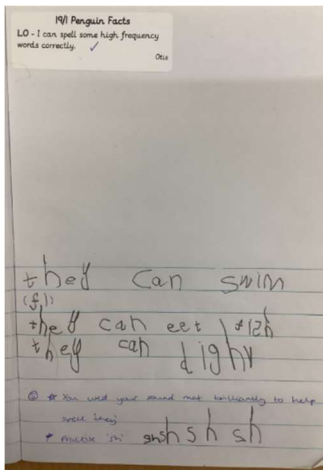 19/1 Penguin Facts
LO - I can spell some high frequency
words correctly. ✓
Otis
they can swim
they can eet fish
they can dighv
* You used your sound mat brilliantly to help
spell 'they'
* Practise 'sh' sh sh sh sh